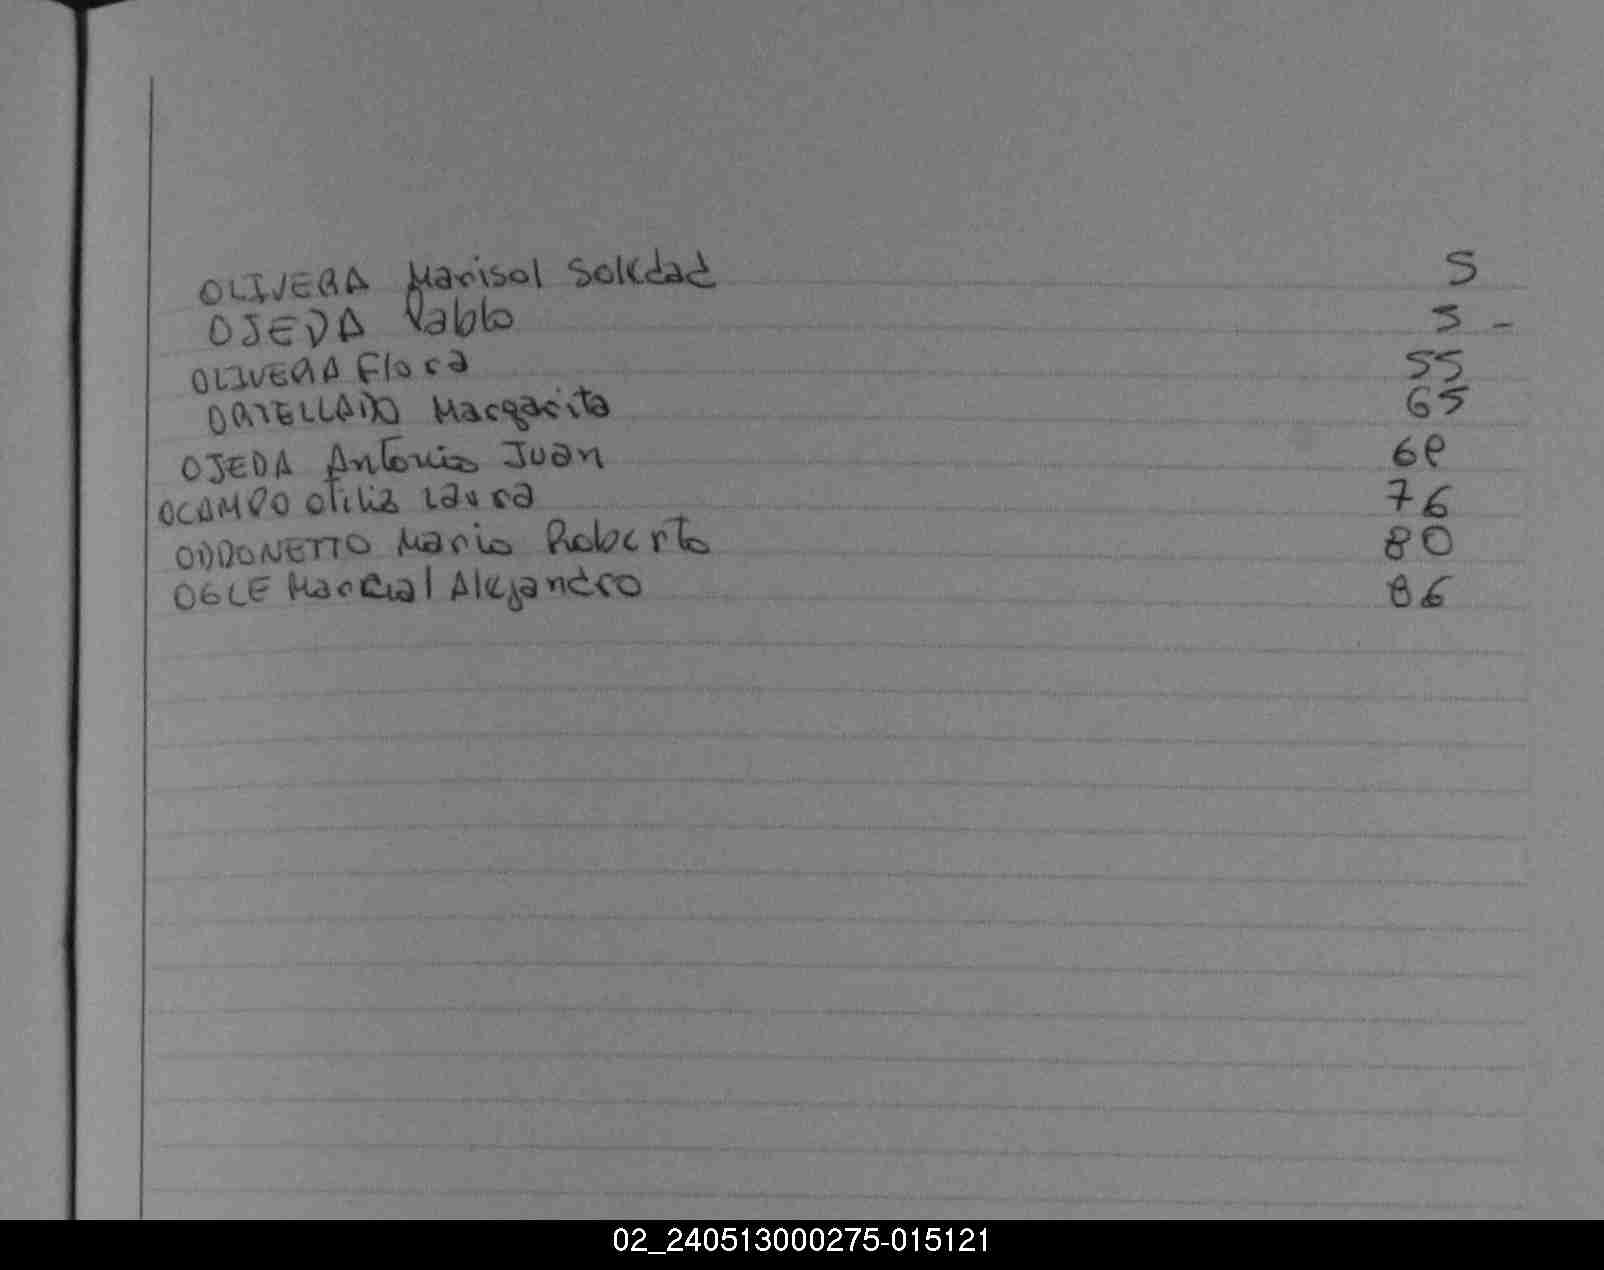 OLIVERA Marisol Soledad 5
OJEDA Pablo 5 -
OLIVERA Flora 55
ORTELLADO Margarita 65
OJEDA Antonio Juan 69
OCAMPO Otilia Laura 76
ODDONETTO Mario Roberto 80
OGLE Marcial Alejandro 86
02_240513000275-015121